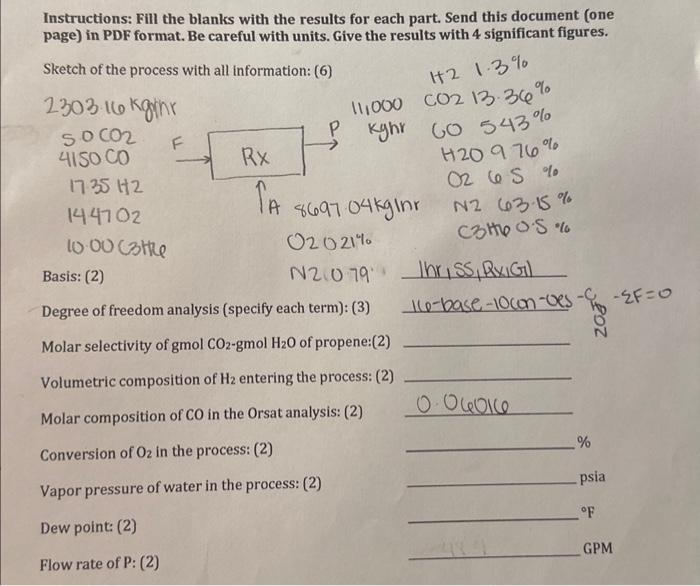 Instructions: Fill the blanks with the results for each part. Send this document (one
page) in PDF format. Be careful with units. Give the results with 4 significant figures.
Sketch of the process with all information: (6)
H2 1.3%
2303.16 kg/hr
11,000 CO2 13.36%
P kg/hr CO 5.43%
50 CO2
F
4150 CO
RX
H2O 9.76%
17.35 H2
O2 6.5 %
A 8697.04 kg/hr N2 63.15 %
1447 O2
C3H6 0.5 %
10.00 C3H6
O2 0.21%
N2 0.79
Basis: (2) 1hr, SS, Rx, G1
Degree of freedom analysis (specify each term): (3) 16-base-10con-0es - -ΣF=0
Molar selectivity of gmol CO2-gmol H2O of propene:(2)
Volumetric composition of H2 entering the process: (2)
Molar composition of CO in the Orsat analysis: (2) 0.06016
Conversion of O2 in the process: (2) %
Vapor pressure of water in the process: (2) psia
Dew point: (2) °F
Flow rate of P: (2) GPM